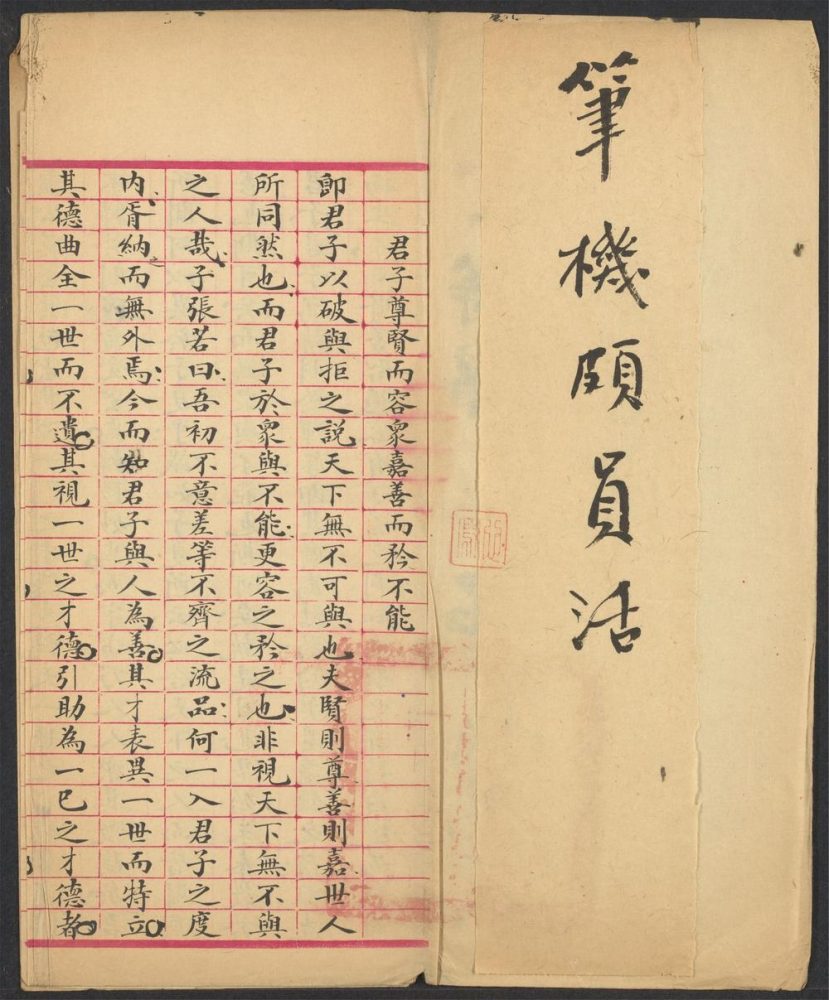 筆機頗員活
君子尊賢而容衆嘉善而矜不能
即君子以破與拒之説天下無不可與也夫賢則尊善則嘉世人
所同然也而君子於衆與不能更容之矜之也非視天下無不與
之人哉子張若曰吾初不意差等不齊之流品何一入君子之度
内胥納之而無外焉今而知君子與人為善其才表異一世而特立
其德曲全一世而不遺其視一世之才德引助為一己之才德者